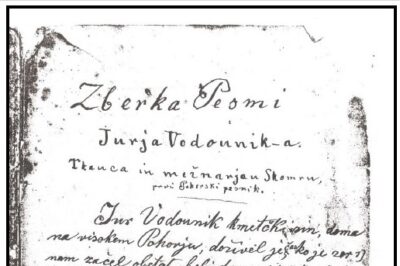 Zberka Pesmi
Jurja Vodounik-a.
Tkauca in mežnarja u Skomru,
pervi Pohorski pesnik.
Jur Vodounik kmetiški sin, doma
na visokem Pohorju, doživel je
nam začel